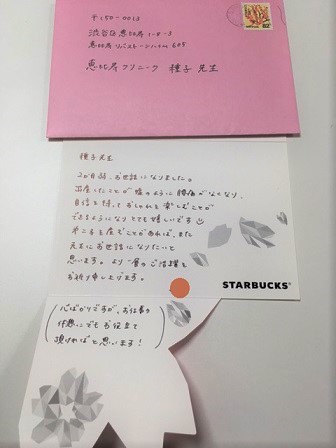 〒150-0013
渋谷区恵比寿1-8-3
恵比寿リバストーンハイム605
恵比寿クリニーク 種子 先生
62
種子先生
2か月弱、お世話になりました。
出産したことが嘘のように腰痛がなくなり、
自信を持っておしゃれを楽しむことが
できるようになりとても嬉しいです
第二子を産むことがあれば、また
先生にお世話になりたいと
思います。より一層のご活躍を
お祈り申し上げます。
STARBUCKS
(心ばかりですが、お仕事の
休憩にでもお役立て
頂ければと思います!)